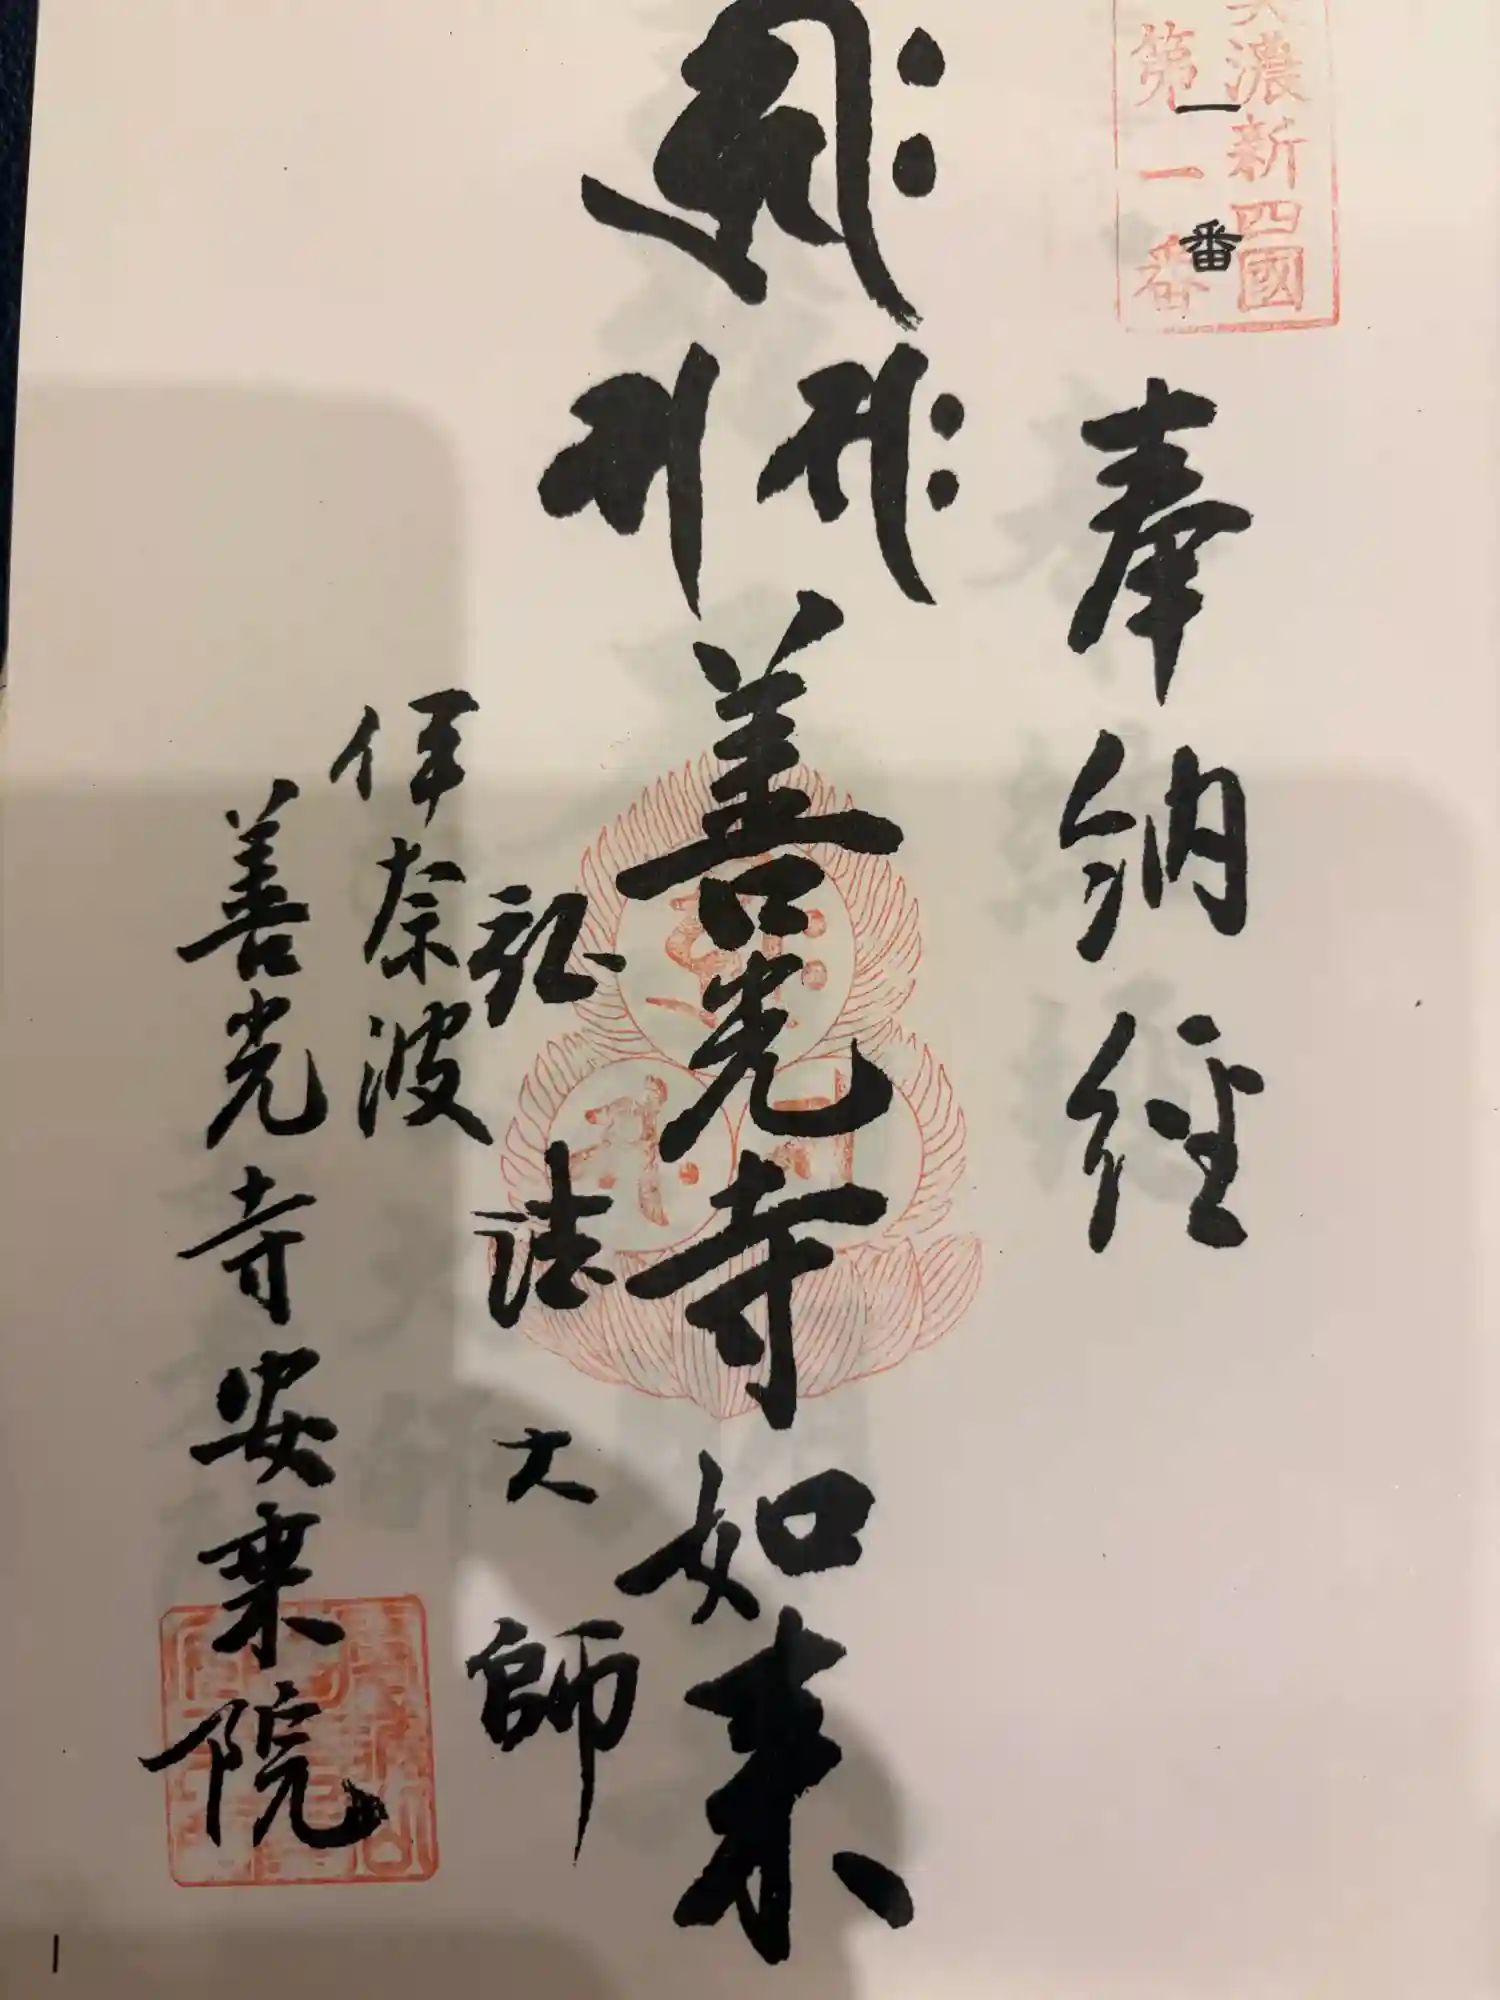 濃新四國
第一番
一番
奉納経
善光寺如来
弘法大師
伊奈波
善光寺安乗院
1